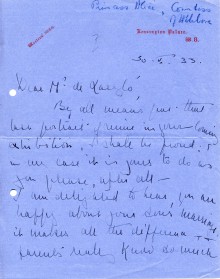 Princess Alice, Countess
of Athlone
Kensington Palace.
W. 8.
30. 33.
Dear Mr de Laszló
By all means use that
last portrait of mine in your
exhibition, I shall be proud &
in any case it is yours to do as
you please, after all –
I am delighted to hear you are
happy about your son's marriage
it makes all the difference
know so much